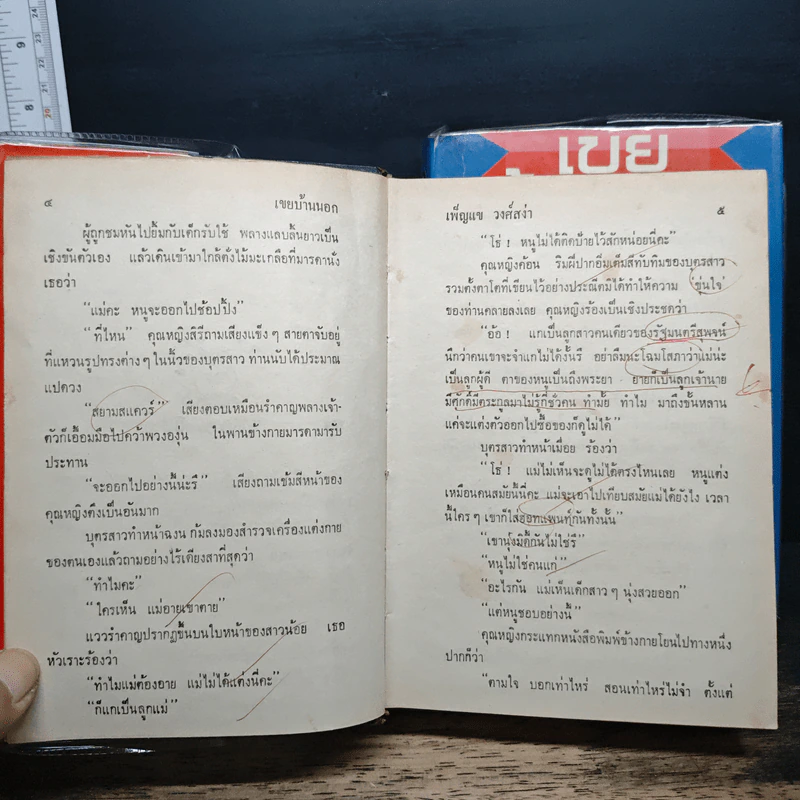 ๔ เขยบ้านนอก
ผู้ถูกชมหันไปยิ้มกับเด็กรับใช้ พลางแลบลิ้นยาวเป็น
เชิงขันตัวเอง แล้วเดินเข้ามาใกล้ตั่งไม้มะเกลือที่มารดานั่ง
เธอว่า
“แม่คะ หนูจะออกไปช้อปปิ้ง”
“ที่ไหน” คุณหญิงสิรีถามเสียงแข็ง ๆ สายตาจับอยู่
ที่แหวนรูปทรงต่าง ๆ ในนิ้วของบุตรสาว ท่านนับได้ประมาณ
แปดวง
“สยามสแควร์” เสียงตอบเหมือนรำคาญพลางเจ้า-
ตัวก็เอื้อมมือไปคว้าพวงองุ่น ในพานข้างกายมารดามารับ
ประทาน
“จะออกไปอย่างนี้น่ะรึ” เสียงถามเข้มสีหน้าของ
คุณหญิงตึงเป็นอันมาก
บุตรสาวทำหน้าฉงน ก้มลงมองสำรวจเครื่องแต่งกาย
ของตนเองแล้วถามอย่างไร้เดียงสาที่สุดว่า
“ทำไมคะ”
“ใครเห็น แม่อายเขาตาย”
แววรำคาญปรากฏขึ้นบนใบหน้าของสาวน้อย เธอ
หัวเราะร้องว่า
“ทำไมแม่ต้องอาย แม่ไม่ได้แต่งนี่คะ”
“ก็แกเป็นลูกแม่”
เพ็ญแข วงศ์สง่า ๕
“โธ่ ! หนูไม่ได้ติดป้ายไว้สักหน่อยนี่คะ”
คุณหญิงค้อน ริมฝีปากอิ่มเต็มสีทับทิมของบุตรสาว
รวมทั้งตาโตที่เขียนไว้อย่างประณีตมิได้ทำให้ความ ‘ขุ่นใจ’
ของท่านคลายลงเลย คุณหญิงร้องเป็นเชิงประชดว่า
“อ้อ ! แกเป็นลูกสาวคนเดียวของรัฐมนตรีสุพจน์
นึกว่าคนเขาจะจำแกไม่ได้งั้นรึ อย่าลืมนะโฉมโสภาว่าแม่น่ะ
เป็นลูกผู้ดี ตาของหนูเป็นถึงพระยา ยายก็เป็นลูกเจ้านาย
มีศักดิ์มีตระกูลมาไม่รู้กี่ชั่วคน ทำมั้ย ทำไม มาถึงชั้นหลาน
แค่จะแต่งตัวออกไปซื้อของก็ดูไม่ได้”
บุตรสาวทำหน้าเมื่อย ร้องว่า
“โธ่ ! แม่ไม่เห็นจะดูไม่ได้ตรงไหนเลย หนูแต่ง
เหมือนคนสมัยนี้นี่คะ แม่จะเอาไปเทียบสมัยแม่ได้ยังไง เวลา
นี้ใคร ๆ เขาก็ใส่ฮอทแพนท์กันทั้งนั้น”
“เขานุ่งมิดี้กันไม่ใช่รึ”
“หนูไม่ใช่คนแก่”
“อะไรกัน แม่เห็นเด็กสาว ๆ นุ่งสวยออก”
“แต่หนูชอบอย่างนี้”
คุณหญิงกระแทกหนังสือพิมพ์ข้างกายโยนไปทางหนึ่ง
ปากก็ว่า
“ตามใจ บอกเท่าไหร่ สอนเท่าไหร่ไม่จำ ตั้งแต่
เขย